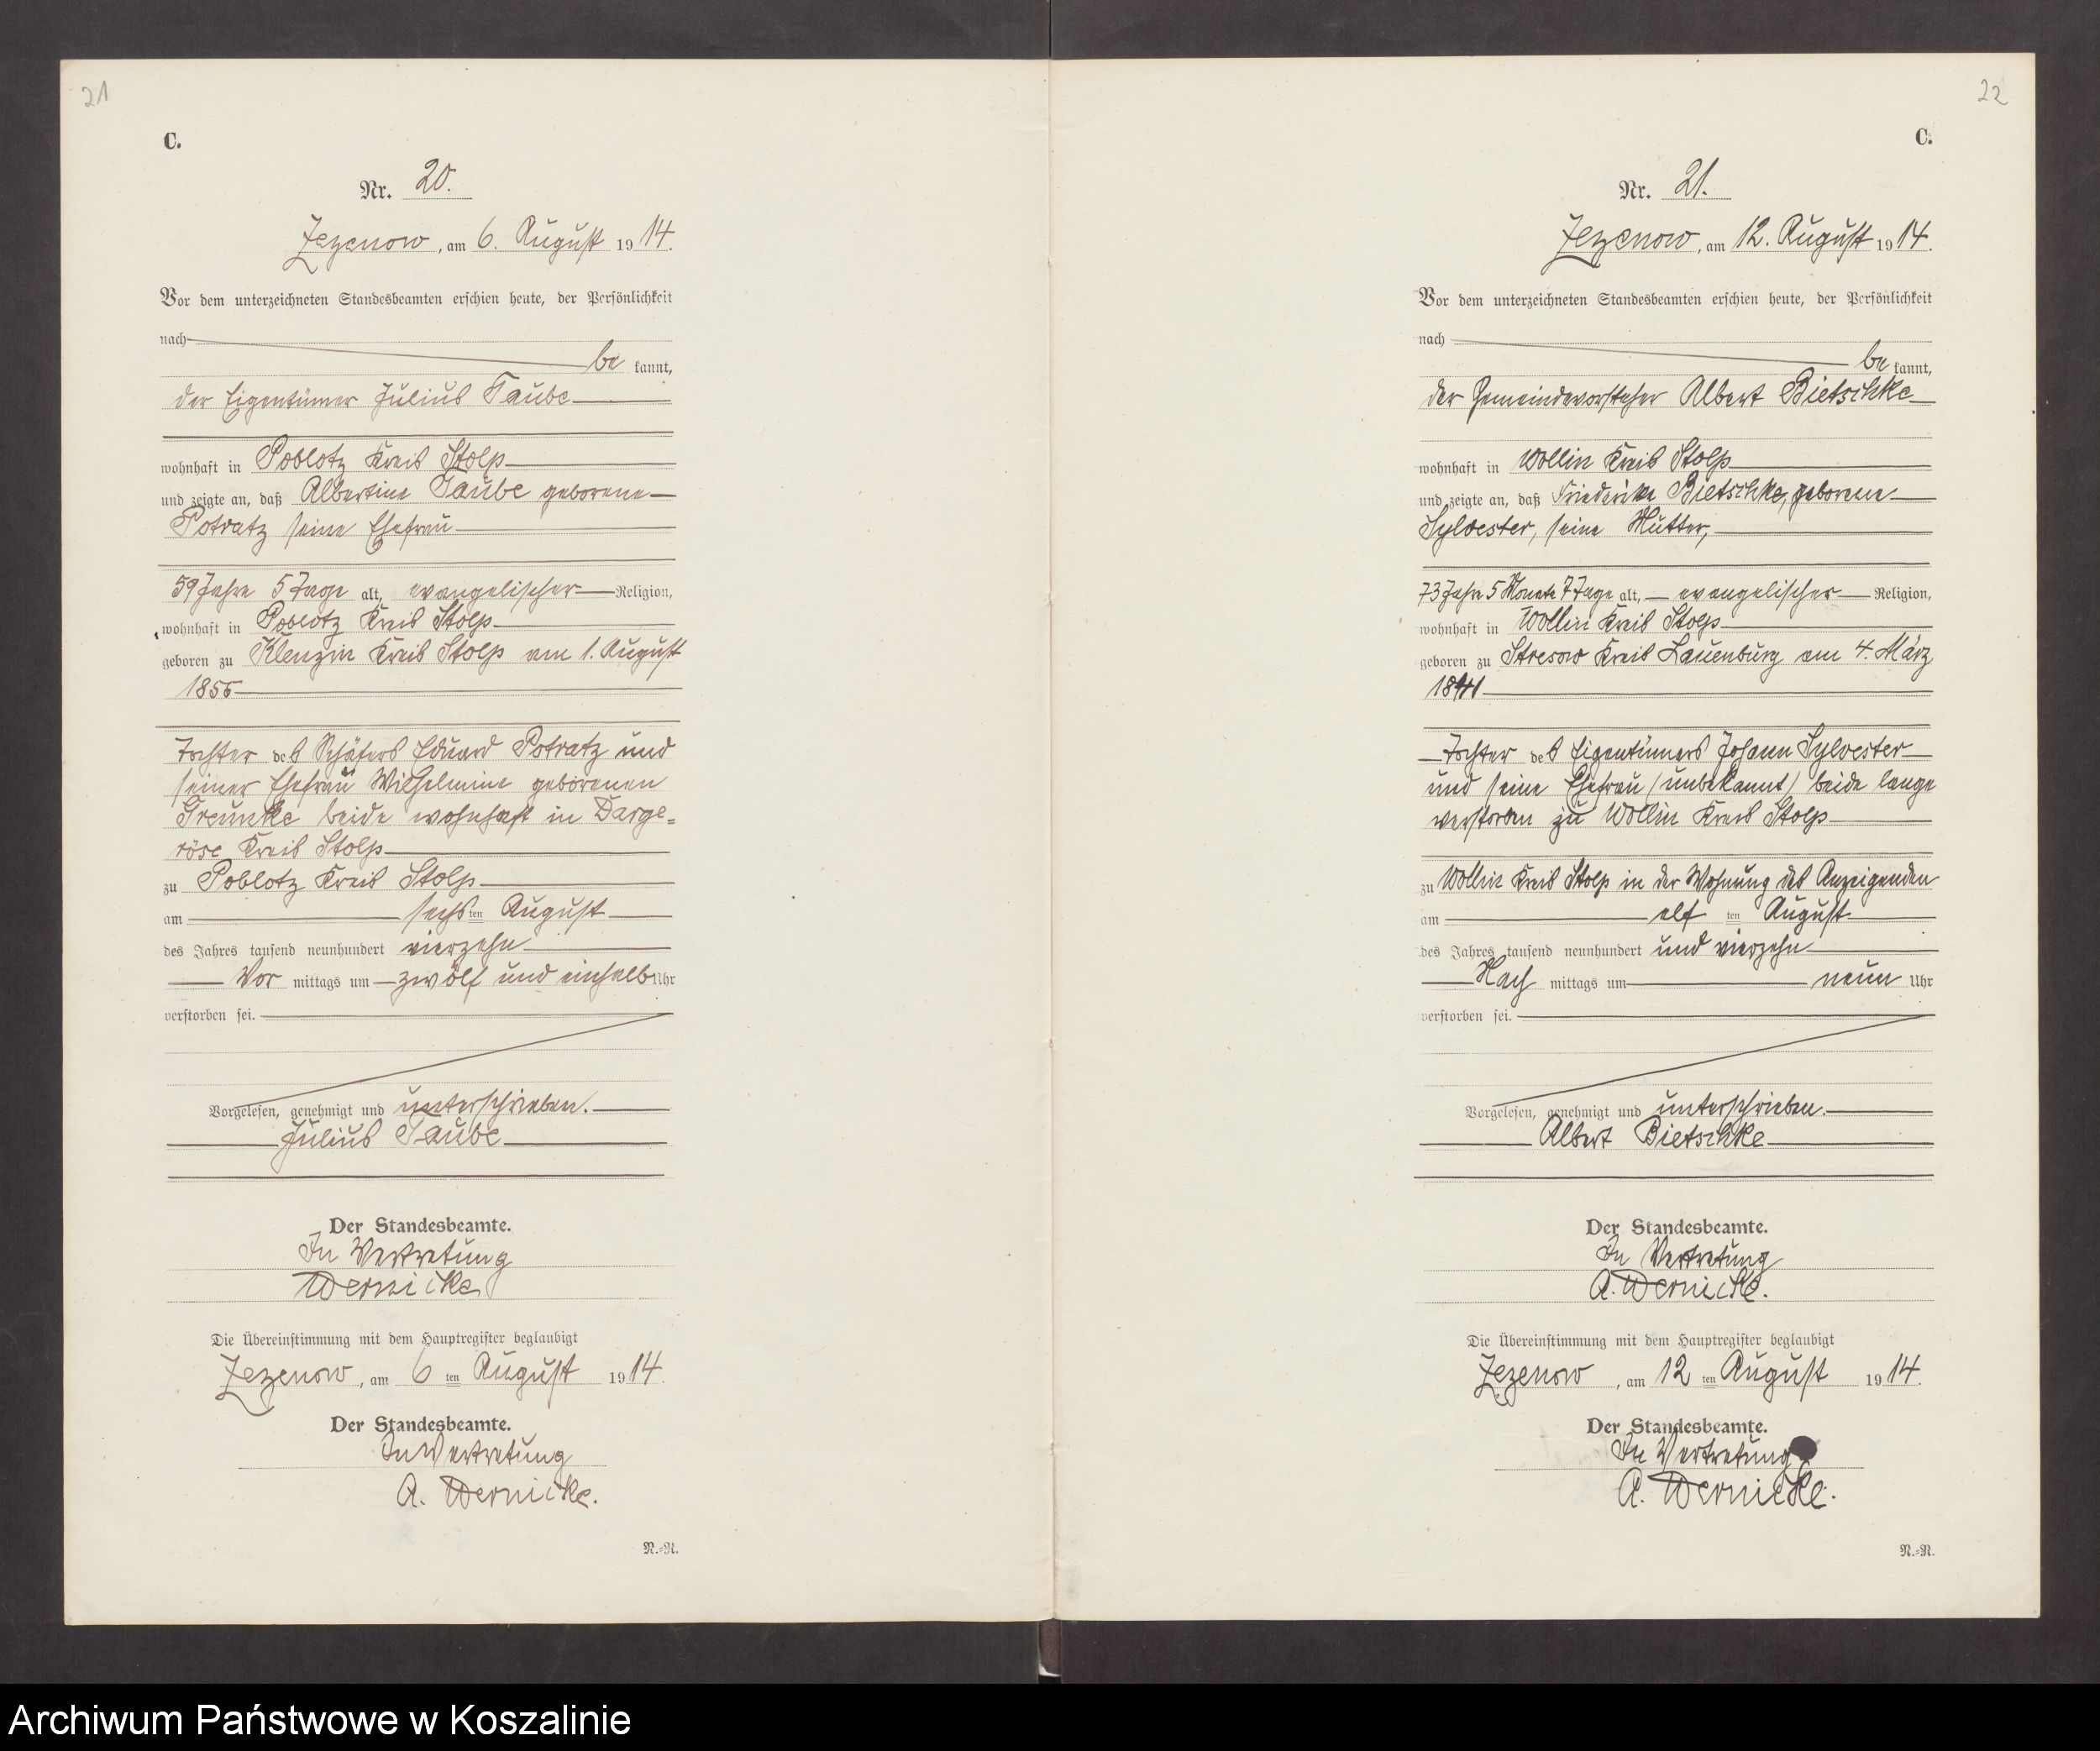 21
C.
Nr. 20.
Zezenow, am 6. August 1914.
Vor dem unterzeichneten Standesbeamten erschien heute, der Persönlichkeit
nach
be kannt,
der Eigentümer Julius Taube
wohnhaft in Poblotz Kreis Stolp
und zeigte an, daß Albertine Taube geborene
Potratz seine Ehefrau
59 Jahre 5 Tage alt, evangelischer Religion,
wohnhaft in Poblotz Kreis Stolp
geboren zu Klenzin Kreis Stolp am 1. August
1855
Tochter des Schäfers Eduard Potratz und
seiner Ehefrau Wilhelmine geborenen
Treunke beide wohnhaft in Darge=
röse Kreis Stolp
zu Poblotz Kreis Stolp
am sechsten August
des Jahres tausend neunhundert vierzehn
Vor mittags um zwölf und einhalb Uhr
verstorben sei.
Vorgelesen, genehmigt und unterschrieben.
Julius Taube
Der Standesbeamte.
In Vertretung
Wernicke
Die Übereinstimmung mit dem Hauptregister beglaubigt
Zezenow, am 6 ten August 1914.
Der Standesbeamte.
In Vertretung
A. Wernicke.
N.=N.
22
C.
Nr. 21.
Zezenow, am 12. August 1914.
Vor dem unterzeichneten Standesbeamten erschien heute, der Persönlichkeit
nach
be kannt,
der Gemeindevorsteher Albert Bietschke
wohnhaft in Wollin Kreis Stolp
und zeigte an, daß Friederike Bietschke, geborene
Sylvester, seine Mutter,
73 Jahre 5 Monate 7 Tage alt, evangelischer Religion,
wohnhaft in Wollin Kreis Stolp
geboren zu Stresow Kreis Lauenburg am 4. März
1841
Tochter des Eigentümers Johann Sylvester
und seine Ehefrau (unbekannt) beide lange
verstorben zu Wollin Kreis Stolp
zu Wollin Kreis Stolp in der Wohnung des Anzeigenden
am elf ten August
des Jahres tausend neunhundert und vierzehn
Nach mittags um neun Uhr
verstorben sei.
Vorgelesen, genehmigt und unterschrieben.
Albert Bietschke
Der Standesbeamte.
In Vertretung
A. Wernicke.
Die Übereinstimmung mit dem Hauptregister beglaubigt
Zezenow, am 12 ten August 1914.
Der Standesbeamte.
In Vertretung
A. Wernicke.
N.=N.
Archiwum Państwowe w Koszalinie